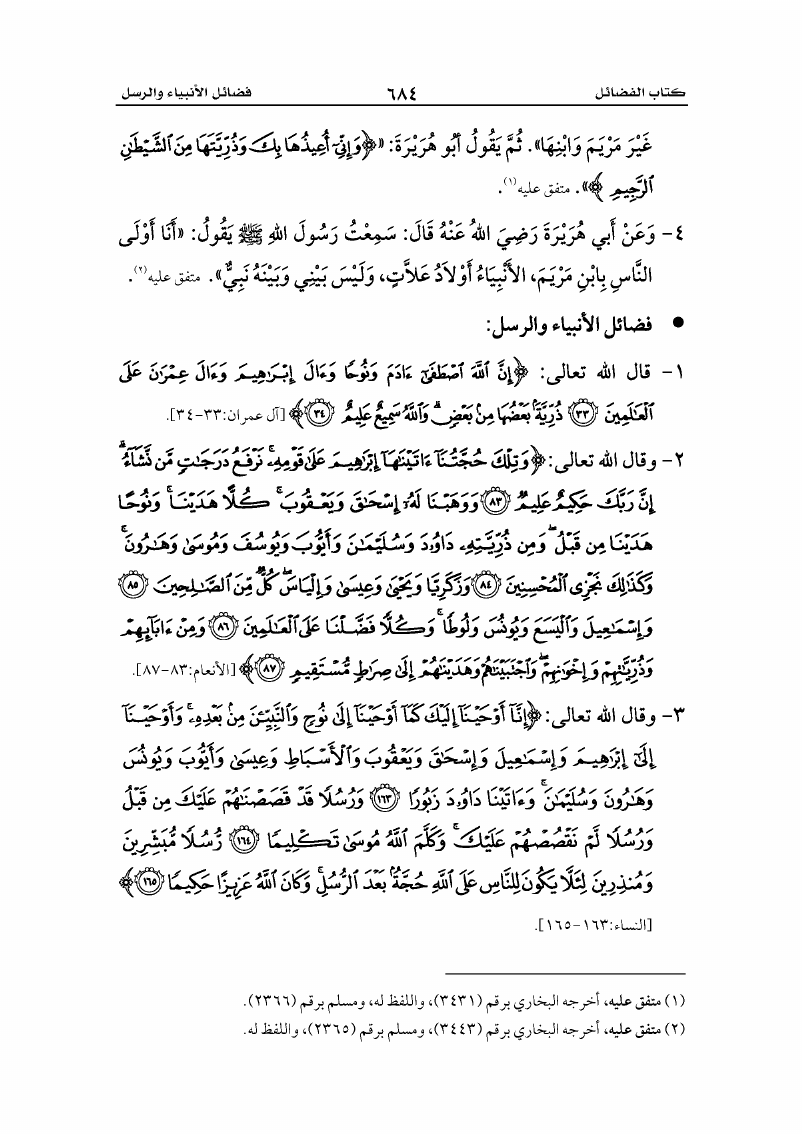 كتاب الفضائل ٦٨٤ فضائل الأنبياء والرسل
غَيْرَ مَرْيَمَ وَابْنِهَا». ثُمَّ يَقُولُ أَبُو هُرَيْرَةَ: «﴿وَإِنِّيٓ أُعِيذُهَا بِكَ وَذُرِّيَّتَهَا مِنَ ٱلشَّيْطَٰنِ
ٱلرَّجِيمِ﴾». متفق عليه(١).
٤- وَعَنْ أَبي هُرَيْرَةَ رَضِيَ اللهُ عَنْهُ قَالَ: سَمِعْتُ رَسُولَ اللهِ ﷺ يَقُولُ: «أَنَا أَوْلَى
النَّاسِ بِابْنِ مَرْيَمَ، الأَنْبِيَاءُ أَوْلاَدُ عَلاَّتٍ، وَلَيْسَ بَيْنِي وَبَيْنَهُ نَبِيٌّ». متفق عليه(٢).
● فضائل الأنبياء والرسل:
١- قال الله تعالى: ﴿إِنَّ ٱللَّهَ ٱصْطَفَىٰٓ ءَادَمَ وَنُوحًا وَءَالَ إِبْرَٰهِيمَ وَءَالَ عِمْرَٰنَ عَلَى
ٱلْعَٰلَمِينَ ٣٣ ذُرِّيَّةًۢ بَعْضُهَا مِنۢ بَعْضٍۗ وَٱللَّهُ سَمِيعٌ عَلِيمٌ ٣٤﴾ [آل عمران:٣٣-٣٤].
٢- وقال الله تعالى: ﴿وَتِلْكَ حُجَّتُنَآ ءَاتَيْنَٰهَآ إِبْرَٰهِيمَ عَلَىٰ قَوْمِهِۦۚ نَرْفَعُ دَرَجَٰتٍ مَّن نَّشَآءُۗ
إِنَّ رَبَّكَ حَكِيمٌ عَلِيمٌ ٨٣ وَوَهَبْنَا لَهُۥٓ إِسْحَٰقَ وَيَعْقُوبَۚ كُلًّا هَدَيْنَاۚ وَنُوحًا
هَدَيْنَا مِن قَبْلُۖ وَمِن ذُرِّيَّتِهِۦ دَاوُۥدَ وَسُلَيْمَٰنَ وَأَيُّوبَ وَيُوسُفَ وَمُوسَىٰ وَهَٰرُونَۚ
وَكَذَٰلِكَ نَجْزِى ٱلْمُحْسِنِينَ ٨٤ وَزَكَرِيَّا وَيَحْيَىٰ وَعِيسَىٰ وَإِلْيَاسَۖ كُلٌّ مِّنَ ٱلصَّٰلِحِينَ ٨٥
وَإِسْمَٰعِيلَ وَٱلْيَسَعَ وَيُونُسَ وَلُوطًاۚ وَكُلًّا فَضَّلْنَا عَلَى ٱلْعَٰلَمِينَ ٨٦ وَمِنْ ءَابَآئِهِمْ
وَذُرِّيَّٰتِهِمْ وَإِخْوَٰنِهِمْۖ وَٱجْتَبَيْنَٰهُمْ وَهَدَيْنَٰهُمْ إِلَىٰ صِرَٰطٍ مُّسْتَقِيمٍ ٨٧﴾ [الأنعام:٨٣-٨٧].
٣- وقال الله تعالى: ﴿إِنَّآ أَوْحَيْنَآ إِلَيْكَ كَمَآ أَوْحَيْنَآ إِلَىٰ نُوحٍ وَٱلنَّبِيِّۦنَ مِنۢ بَعْدِهِۦۚ وَأَوْحَيْنَآ
إِلَىٰٓ إِبْرَٰهِيمَ وَإِسْمَٰعِيلَ وَإِسْحَٰقَ وَيَعْقُوبَ وَٱلْأَسْبَاطِ وَعِيسَىٰ وَأَيُّوبَ وَيُونُسَ
وَهَٰرُونَ وَسُلَيْمَٰنَۚ وَءَاتَيْنَا دَاوُۥدَ زَبُورًا ١٦٣ وَرُسُلًا قَدْ قَصَصْنَٰهُمْ عَلَيْكَ مِن قَبْلُ
وَرُسُلًا لَّمْ نَقْصُصْهُمْ عَلَيْكَۚ وَكَلَّمَ ٱللَّهُ مُوسَىٰ تَكْلِيمًا ١٦٤ رُّسُلًا مُّبَشِّرِينَ
وَمُنذِرِينَ لِئَلَّا يَكُونَ لِلنَّاسِ عَلَى ٱللَّهِ حُجَّةٌۢ بَعْدَ ٱلرُّسُلِۚ وَكَانَ ٱللَّهُ عَزِيزًا حَكِيمًا ١٦٥﴾
[النساء:١٦٣-١٦٥].
(١) متفق عليه، أخرجه البخاري برقم (٣٤٣١)، واللفظ له، ومسلم برقم (٢٣٦٦).
(٢) متفق عليه، أخرجه البخاري برقم (٣٤٤٣)، ومسلم برقم (٢٣٦٥)، واللفظ له.